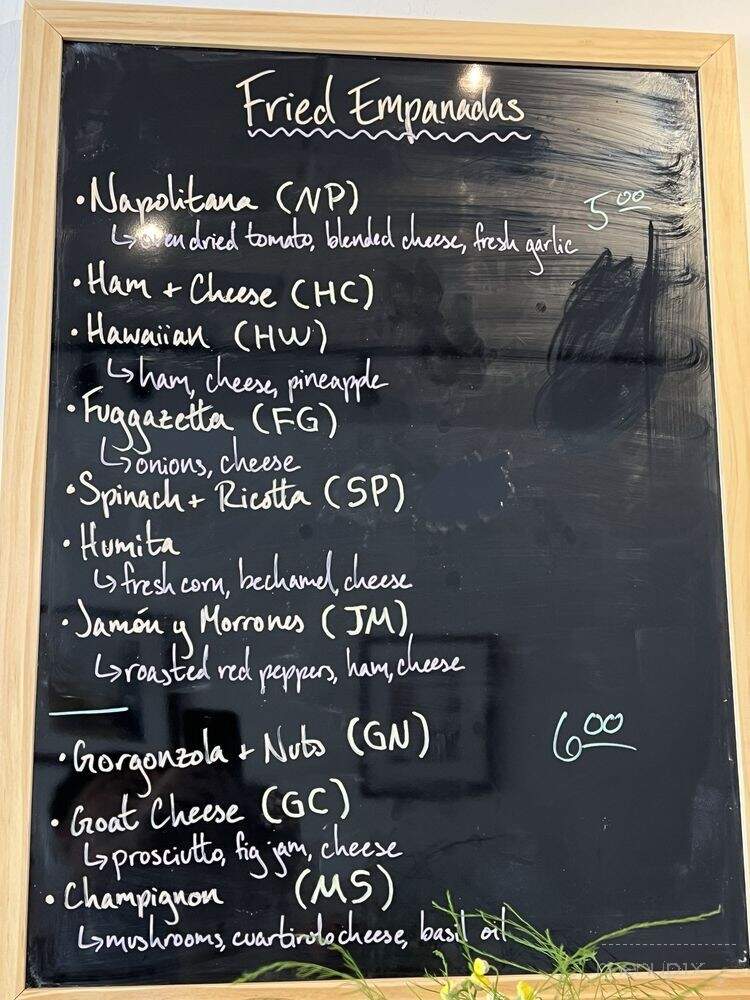 Fried Empanadas
• Napolitana (NP) 5.00
↳ oven dried tomato, blended cheese, fresh garlic
• Ham + Cheese (HC)
• Hawaiian (HW)
↳ ham, cheese, pineapple
• Fuggazetta (FG)
↳ onions, cheese
• Spinach + Ricotta (SP)
• Humita
↳ fresh corn, bechamel, cheese
• Jamón y Morrones (JM)
↳ roasted red peppers, ham, cheese
• Gorgonzola + Nuts (GN) 6.00
• Goat Cheese (GC)
↳ prosciutto, fig jam, cheese
• Champignon (MS)
↳ mushrooms, cuartirolo cheese, basil oil